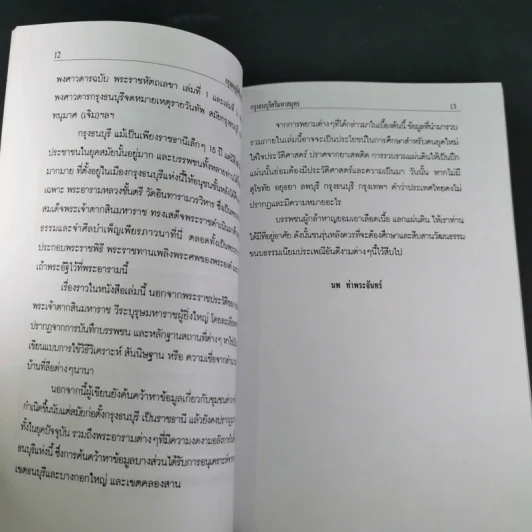 12
พงศาวดารฉบับ พระราชหัตถเลขา เล่มที่ 1 และเล่มที่
พงศาวดารกรุงธนบุรีจดหมายเหตุรายวันทัพ สมัยกรุงธนบุรี
ทนุมาศ (เจิม)ฯลฯ
กรุงธนบุรี แม้เป็นเพียงราชธานีเล็กๆ 15 ปี
ประชาชนในยุคสมัยนั้นอยู่มาก และบรรพชนทั้งหลาย
มากมาย ที่ตั้งอยู่ในเมืองกรุงธนบุรีแห่งนี้ให้อนุชนรุ่นหลังได้
เฉพาะ พระอารามหลวงชั้นตรี วัดอินทารามวรวิหาร ซึ่งเป็น
สมเด็จพระเจ้าตากสินมหาราช ทรงเสด็จพระราชดำเนินมา
ธรรมและจำศีลบำเพ็ญเพียรภาวนาที่นี่ ตลอดทั้งเป็น
ประกอบพระราชพิธี พระราชทานเพลิงพระศพของพระองค์
เถ้าพระอัฐิไว้ที่พระอารามนี้
เรื่องราวในหนังสือเล่มนี้ นอกจากพระราชประวัติของ
พระเจ้าตากสินมหาราช วีระบุรุษมหาราชผู้ยิ่งใหญ่ โดยละเอียด
ปรากฏจากการบันทึกบรรพชน และหลักฐานสถานที่ต่างๆ
เขียนแบบการใช้วิธีวิเคราะห์ สันนิษฐาน หรือ ความเชื่อจากตำนาน
บ้านที่ลือต่างๆนานา
นอกจากนี้ผู้เขียนยังค้นคว้าหาข้อมูลเกี่ยวกับชุมชน
กำเนิดขึ้นนับแต่สมัยก่อตั้งกรุงธนบุรี เป็นราชธานี แล้วยังคงปรากฏ
ทั้งในยุคปัจจุบัน รวมถึงพระอารามต่างๆที่มีความงดงามอลังการ
ธนบุรีแห่งนี้ ซึ่งการค้นคว้าหาข้อมูลบางส่วนได้รับการอนุเคราะห์จาก
เขตธนบุรีและบางกอกใหญ่ และเขตคลองสาน
กรุงธนบุรีศรีมหาสมุทร 13
จากการพยายามต่างๆที่ได้กล่าวมาในเบื้องต้นนี้ ข้อมูลที่นำมารวบ
รวมภายในเล่มนี้อาจจะเป็นประโยชน์ในการศึกษาสำหรับคนยุคใหม่
ใส่ใจประวัติศาสตร์ ปราศจากยาเสพติด การรวบรวมแผ่นดินให้เป็นปึก
แผ่นนั้นย่อมต้องมีประวัติศาสตร์และความเป็นมา วันนั้น หากไม่มี
สุโขทัย อยุธยา ลพบุรี กรุงธนบุรี กรุงเทพฯ คำว่าประเทศไทยคงไม่
ปรากฏและมีความหมายอะไร
บรรพชนผู้กล้าหาญยอมเอาเลือดเนื้อ แลกแผ่นดิน ให้เราท่าน
ได้มีที่อยู่อาศัย ดังนั้นชนรุ่นหลังควรที่จะต้องศึกษาและสืบสานวัฒนธรรม
ขนบธรรมเนียมประเพณีอันดีงามต่างๆนี้ไว้สืบไป
นพ ท่าพระจันทร์